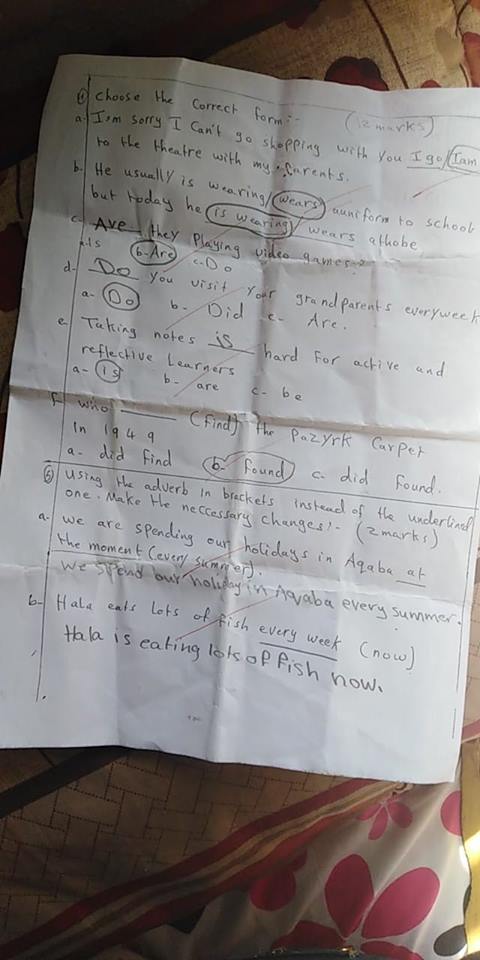 ④ choose the correct form:- (12 marks)
a. I'm sorry I can't go shopping with you I go/Iam
to the theatre with my parents.
b. He usually is wearing/wears auniform to school
but today he is wearing/wears athobe
c. Are they playing video games?
a.Is b-Are c-Do
d- Do you visit your grandparents everyweek
a- Do b- Did c- Are.
e- Taking notes is hard for active and
reflective Learners
a- Is b- are c- be
f- who ______ (find) the Pazyrk Carpet
In 1949
a- did find b- found c- did found.
⑤ Using the adverb in brackets instead of the underlined
one. Make the neccessary changes:- (2marks)
a- we are spending our holidays in Aqaba at
the moment (every summer).
We spend our holiday in Aqaba every summer.
b- Hala eats lots of fish every week (now)
Hala is eating lots of fish now.